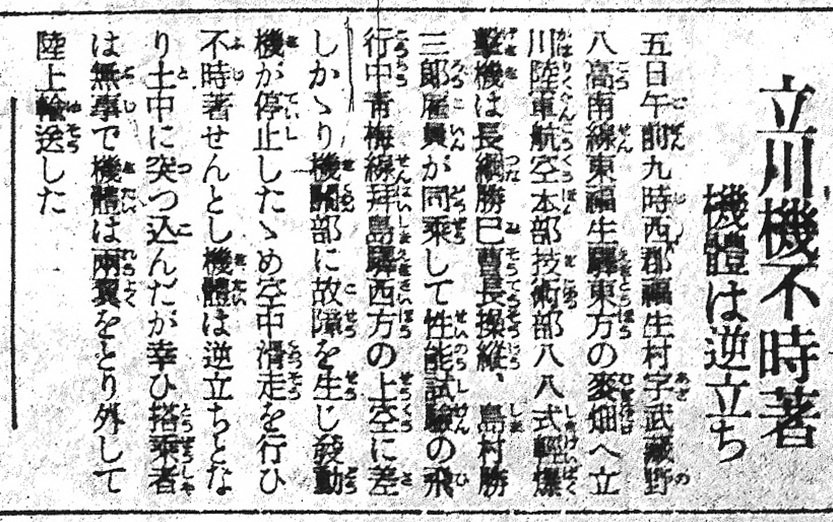 立川機不時著
機體は逆立ち
五日午前九時西郡福生村字武藏野
八高南線東福生驛東方の麥畑へ立
川陸軍航空本部技術部八八式輕爆
擊機は長綱勝巳曹長操縱、島村勝
三郞雇員が同乘して性能試驗の飛
行中靑梅線拜島驛西方の上空に差
しかゝり機關部に故障を生じ發動
機が停止したゝめ空中滑走を行ひ
不時著せんとし機體は逆立ちとな
り土中に突つ込んだが幸ひ搭乘者
は無事で機體は兩翼をとり外して
陸上輸送した